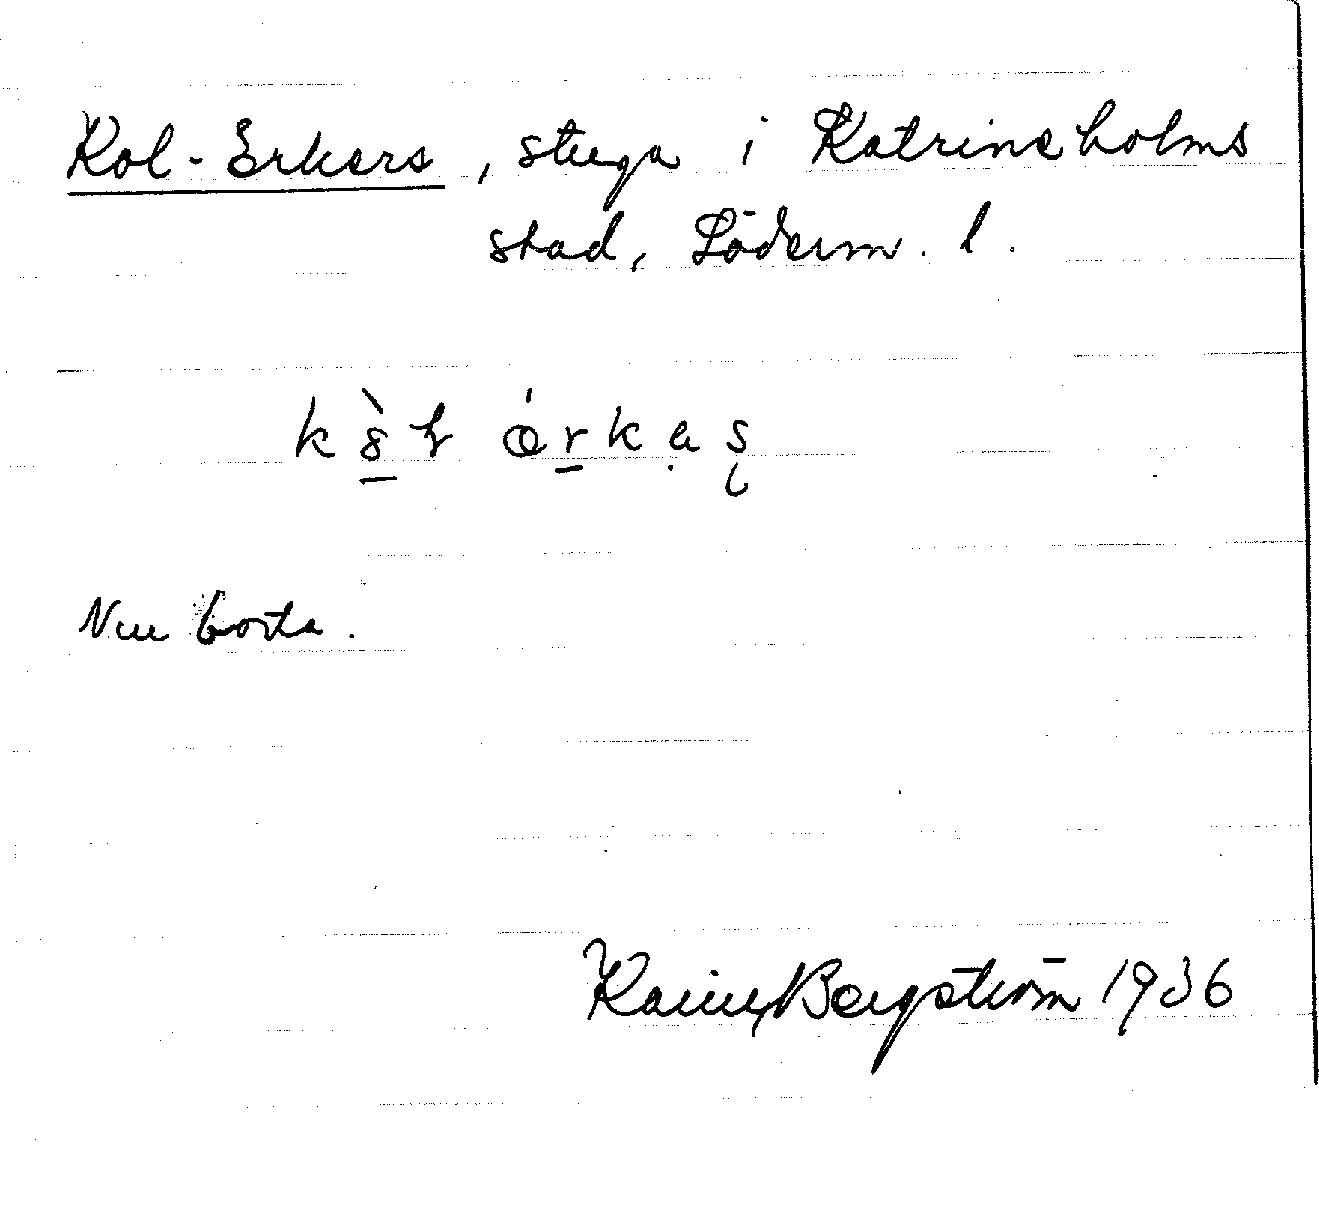 Kol-Erkers, stuga i Katrineholms
stad, Söderm. l.
Nu borta.
Bergström 1936